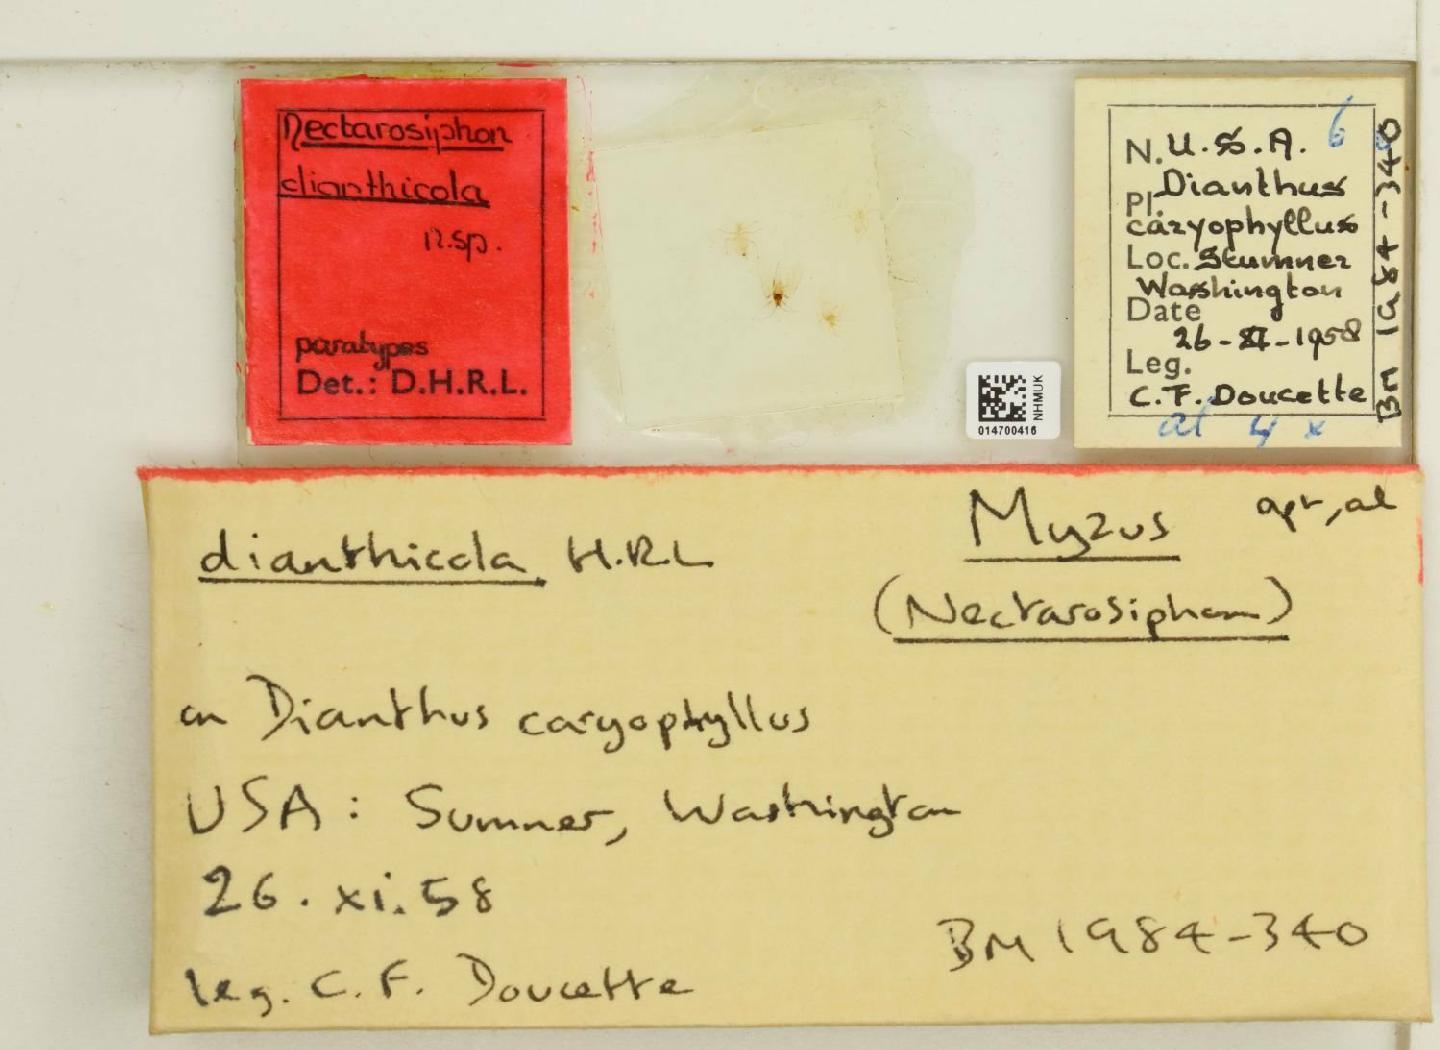 Nectarosiphon
dianthicola
n.sp.
paratypes
Det.: D.H.R.L.
NHMUK
014700416
6
N. U.S.A.
Pl. Dianthus
caryophyllus
Loc. Stumner
Washington
Date
26-XI-1958
Leg.
C.F. Doucette
al 4 x
BM 1984-340
dianthicola H.R.L
Myzus
apt, al
(Nectarosiphon)
on Dianthus caryophyllus
USA: Sumner, Washington
26.xi.58
leg. C.F. Doucette
BM 1984-340